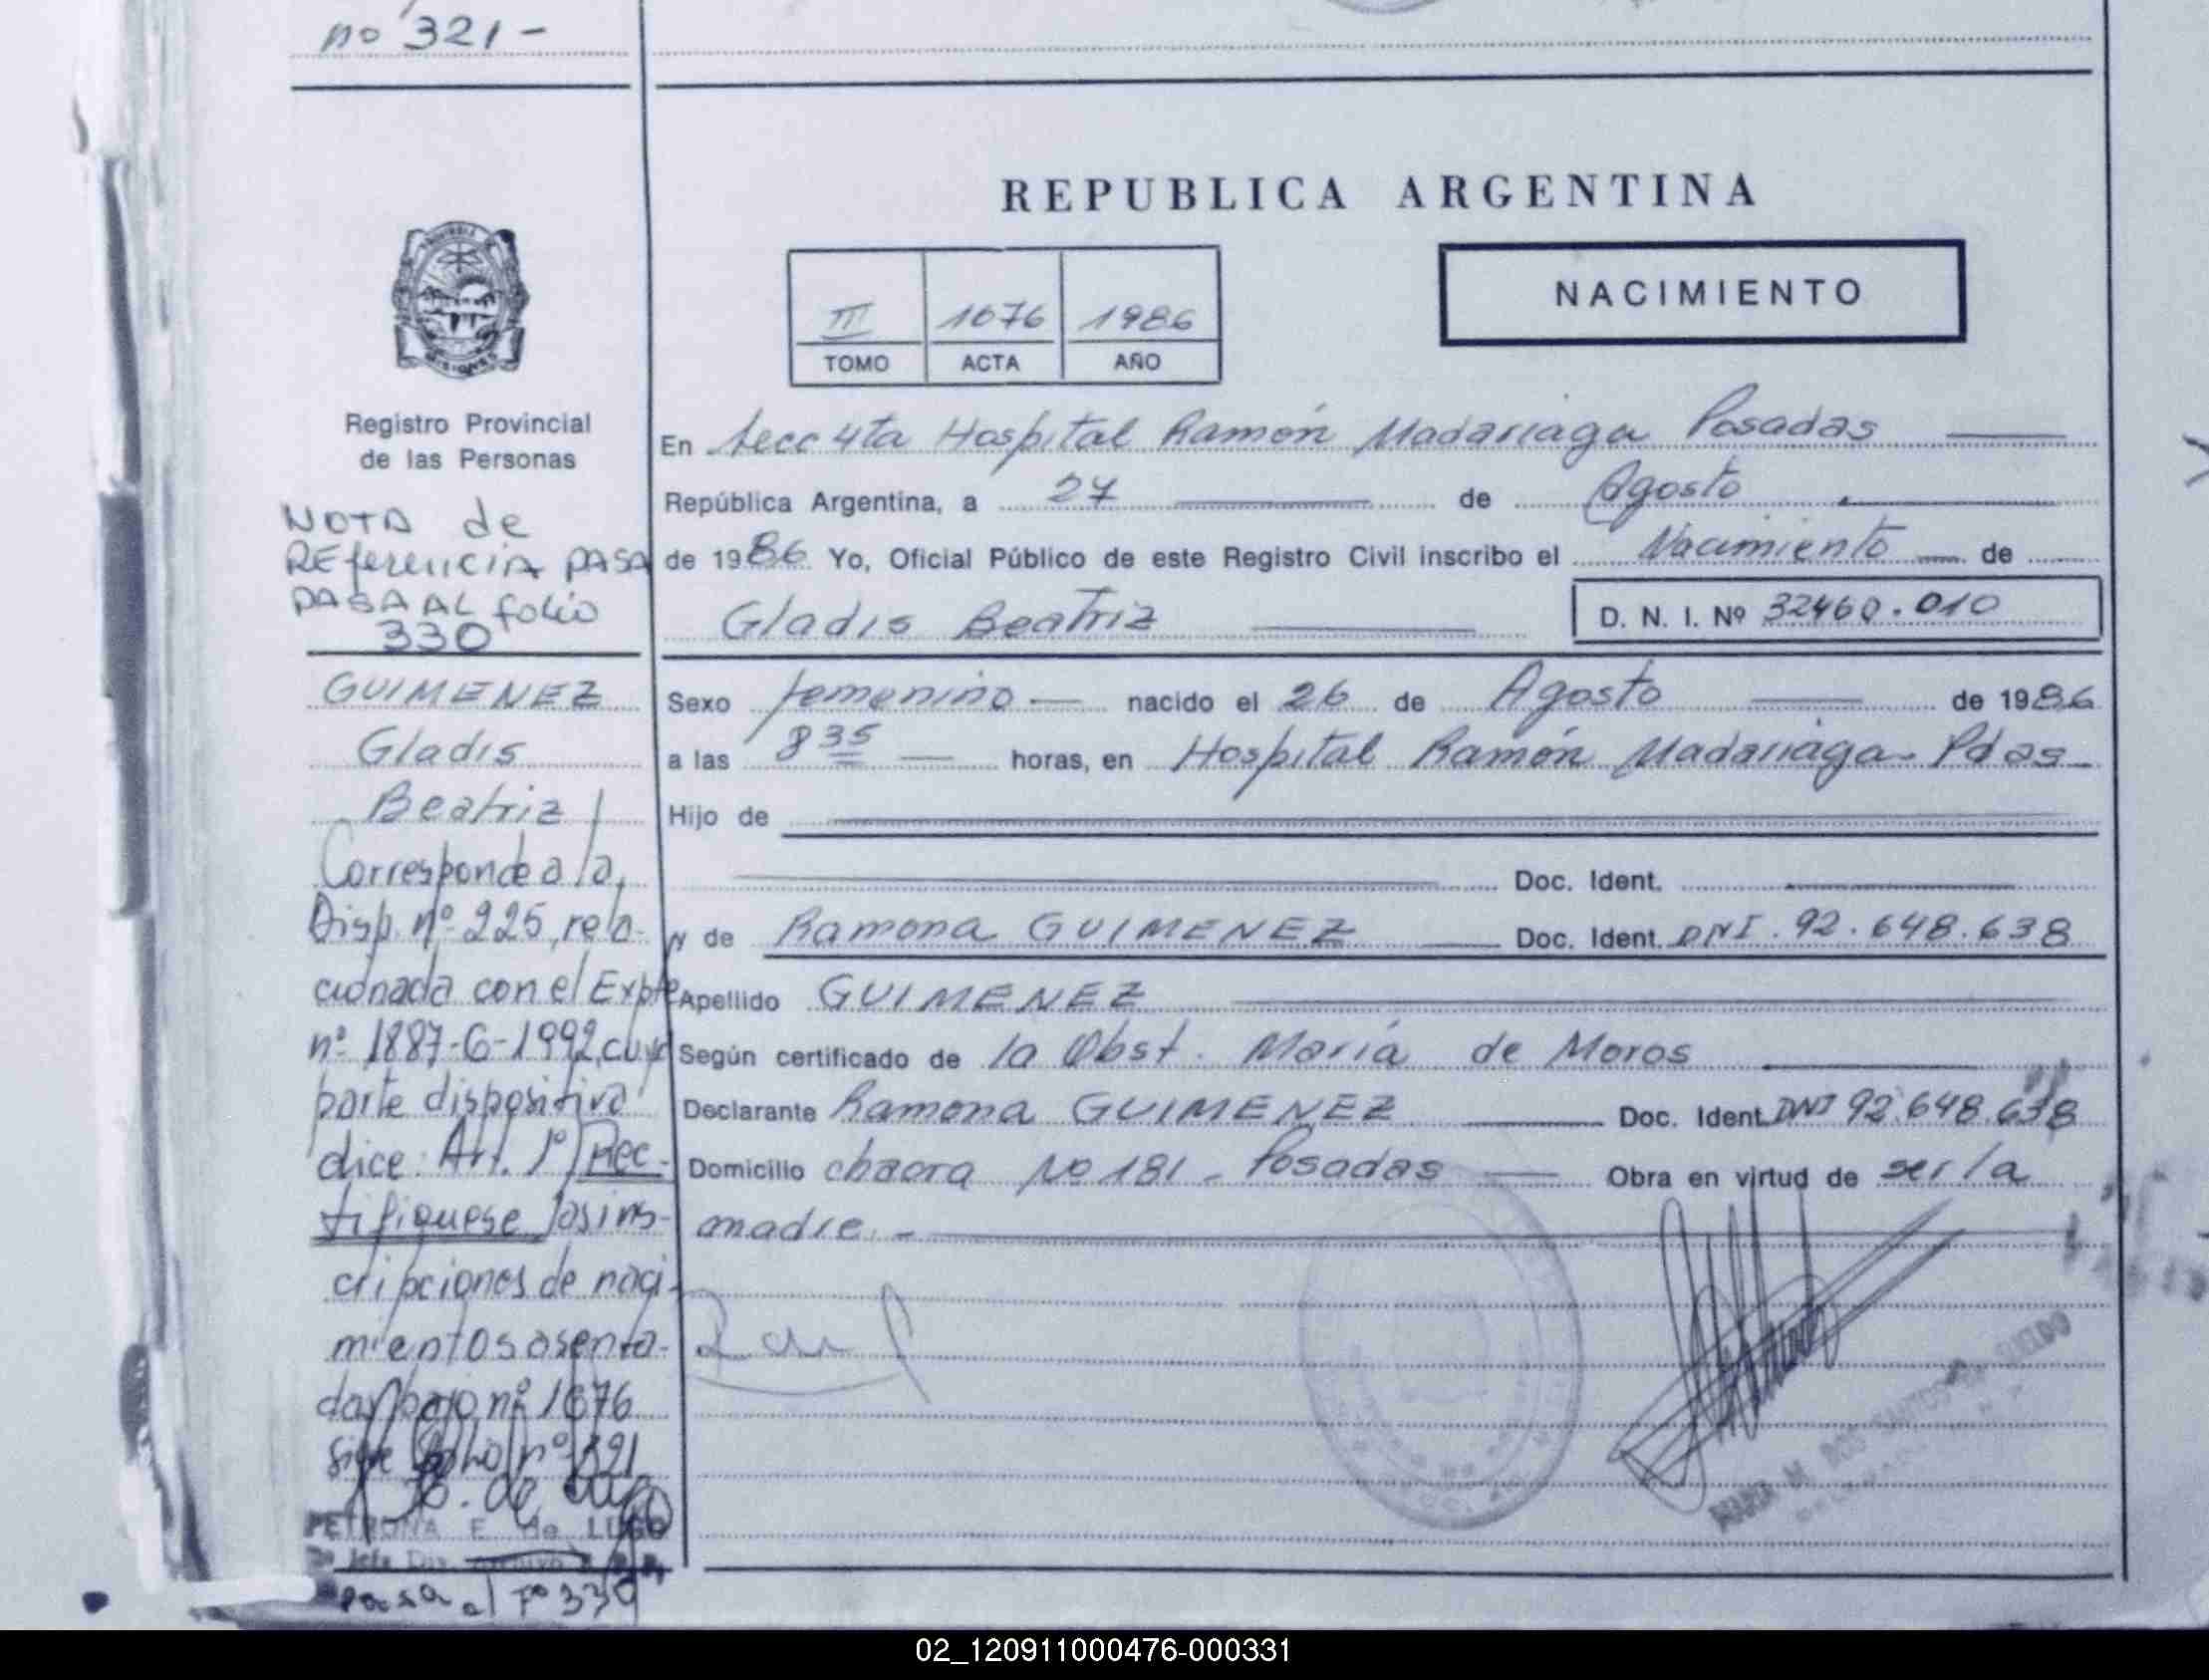 no 321-
REPUBLICA ARGENTINA
III 1676 1986
TOMO ACTA AÑO
NACIMIENTO
Registro Provincial
de las Personas
NOTA de
REferencia PASA
PASA AL folio
330
GUIMENEZ
Gladis
Beatriz
Corresponde a la
Disp. nº 225, rela-
cionada con el Expte
nº 1887-G-1992, cuya
parte dispositiva
dice: Art. 1º) Rec-
tifiquese las ins-
cripciones de naci-
mientos asenta-
das bajo nº 1676
sigue folio nº 321
PETRONA E. de LUGO
Pasa al Fº 330
En Secc 4ta Hospital Ramón Madariaga Posadas
República Argentina, a 27 de Agosto
de 1986 Yo, Oficial Público de este Registro Civil inscribo el Nacimiento de
Gladis Beatriz D. N. I. Nº 32460.010
Sexo femenino nacido el 26 de Agosto de 1986
a las 8 35 horas, en Hospital Ramón Madariaga- Pdas
Hijo de
Doc. Ident.
y de Ramona GUIMENEZ Doc. Ident. DNI. 92.648.638
Apellido GUIMENEZ
Según certificado de la Obst. María de Moros
Declarante Ramona GUIMENEZ Doc. Ident. DNI 92.648.638
Domicilio chacra No 181 - Posadas Obra en virtud de ser la
madre.-
02_120911000476-000331